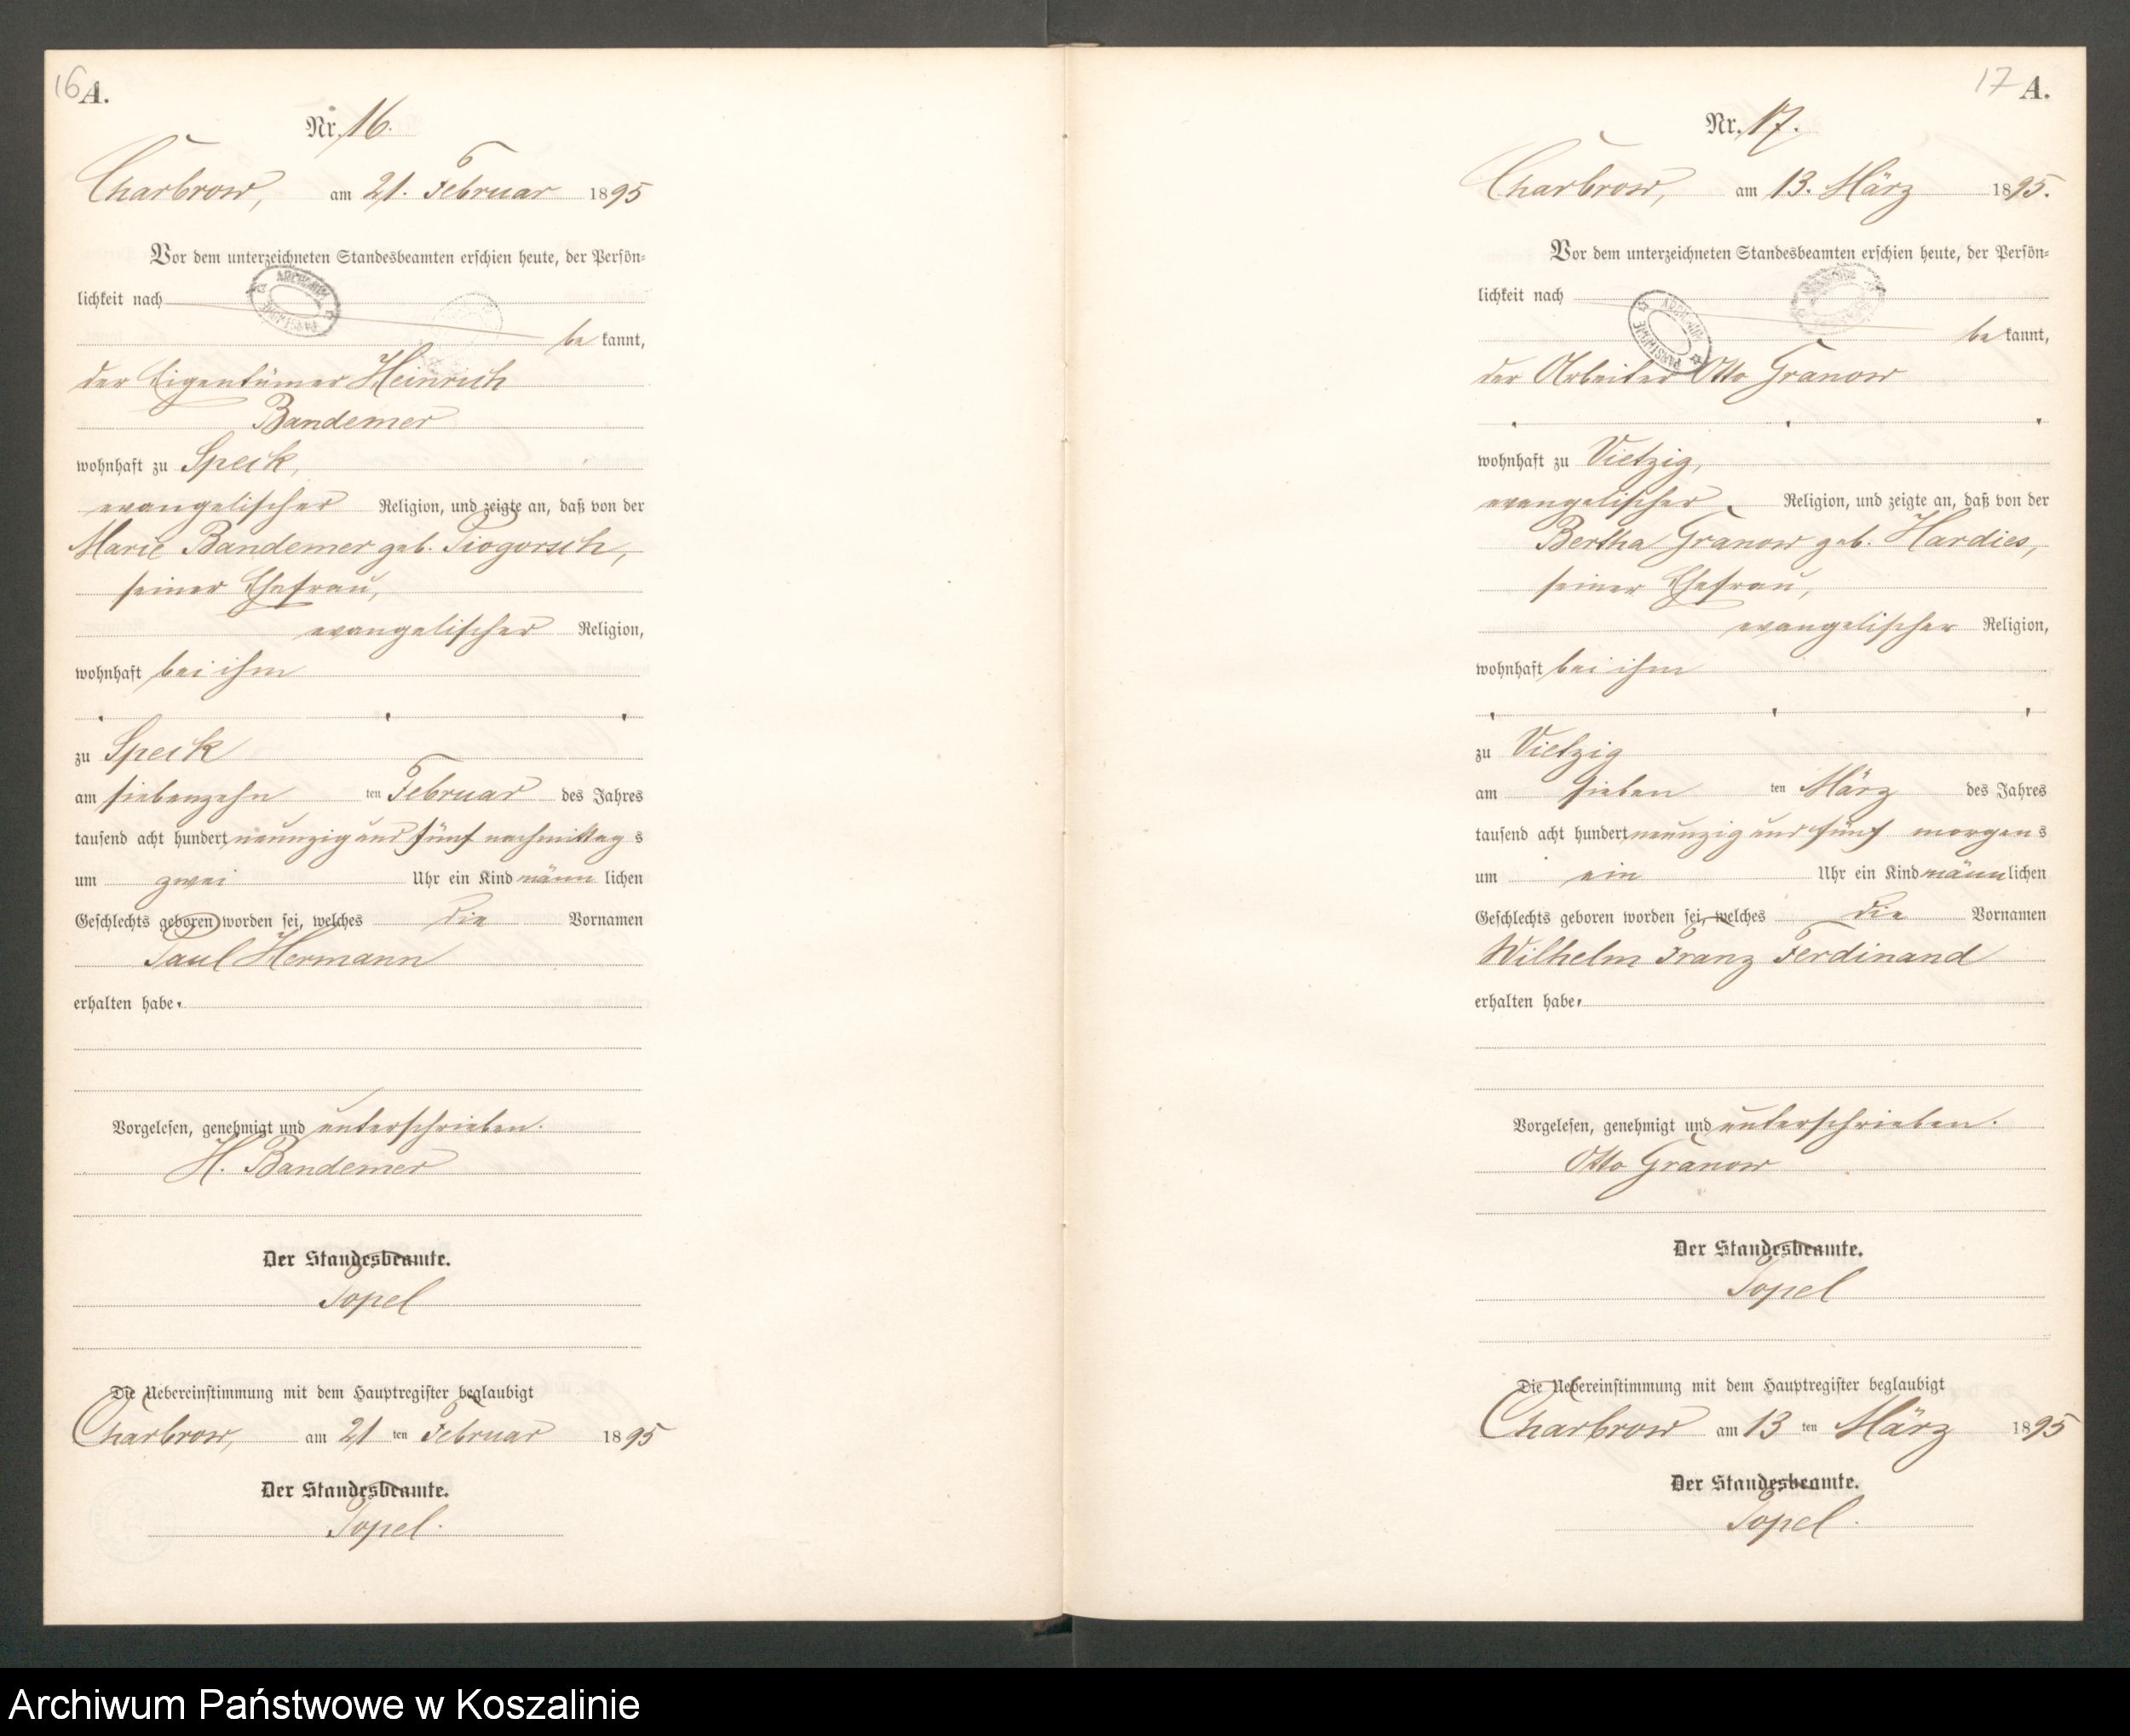 16 A.
Nr. 16.
Charbrow, am 21. Februar 1895
Vor dem unterzeichneten Standesbeamten erschien heute, der Persön=
lichkeit nach
be kannt,
der Eigentümer Heinrich
Bandemer
wohnhaft zu Speck,
evangelischer Religion, und zeigte an, daß von der
Marie Bandemer geb. Piogorsch,
seiner Ehefrau,
evangelischer Religion,
wohnhaft bei ihm
zu Speck
am siebenzehn ten Februar des Jahres
tausend acht hundert neunzig und fünf nachmittag s
um zwei Uhr ein Kind männ lichen
Geschlechts geboren worden sei, welches die Vornamen
Paul Hermann
erhalten habe.
Vorgelesen, genehmigt und unterschrieben.
H. Bandemer
Der Standesbeamte.
Topel
Die Uebereinstimmung mit dem Hauptregister beglaubigt
Charbrow, am 21 ten Februar 1895
Der Standesbeamte.
Topel.
17 A.
Nr. 17.
Charbrow, am 13. März 1895.
Vor dem unterzeichneten Standesbeamten erschien heute, der Persön=
lichkeit nach
be kannt,
der Arbeiter Otto Granow
wohnhaft zu Vietzig,
evangelischer Religion, und zeigte an, daß von der
Bertha Granow geb. Hardies,
seiner Ehefrau,
evangelischer Religion,
wohnhaft bei ihm
zu Vietzig
am sieben ten März des Jahres
tausend acht hundert neunzig und fünf morgen s
um ein Uhr ein Kind männ lichen
Geschlechts geboren worden sei, welches die Vornamen
Wilhelm Franz Ferdinand
erhalten habe.
Vorgelesen, genehmigt und unterschrieben.
Otto Granow
Der Standesbeamte.
Topel
Die Uebereinstimmung mit dem Hauptregister beglaubigt
Charbrow am 13 ten März 1895
Der Standesbeamte.
Topel.
Archiwum Państwowe w Koszalinie